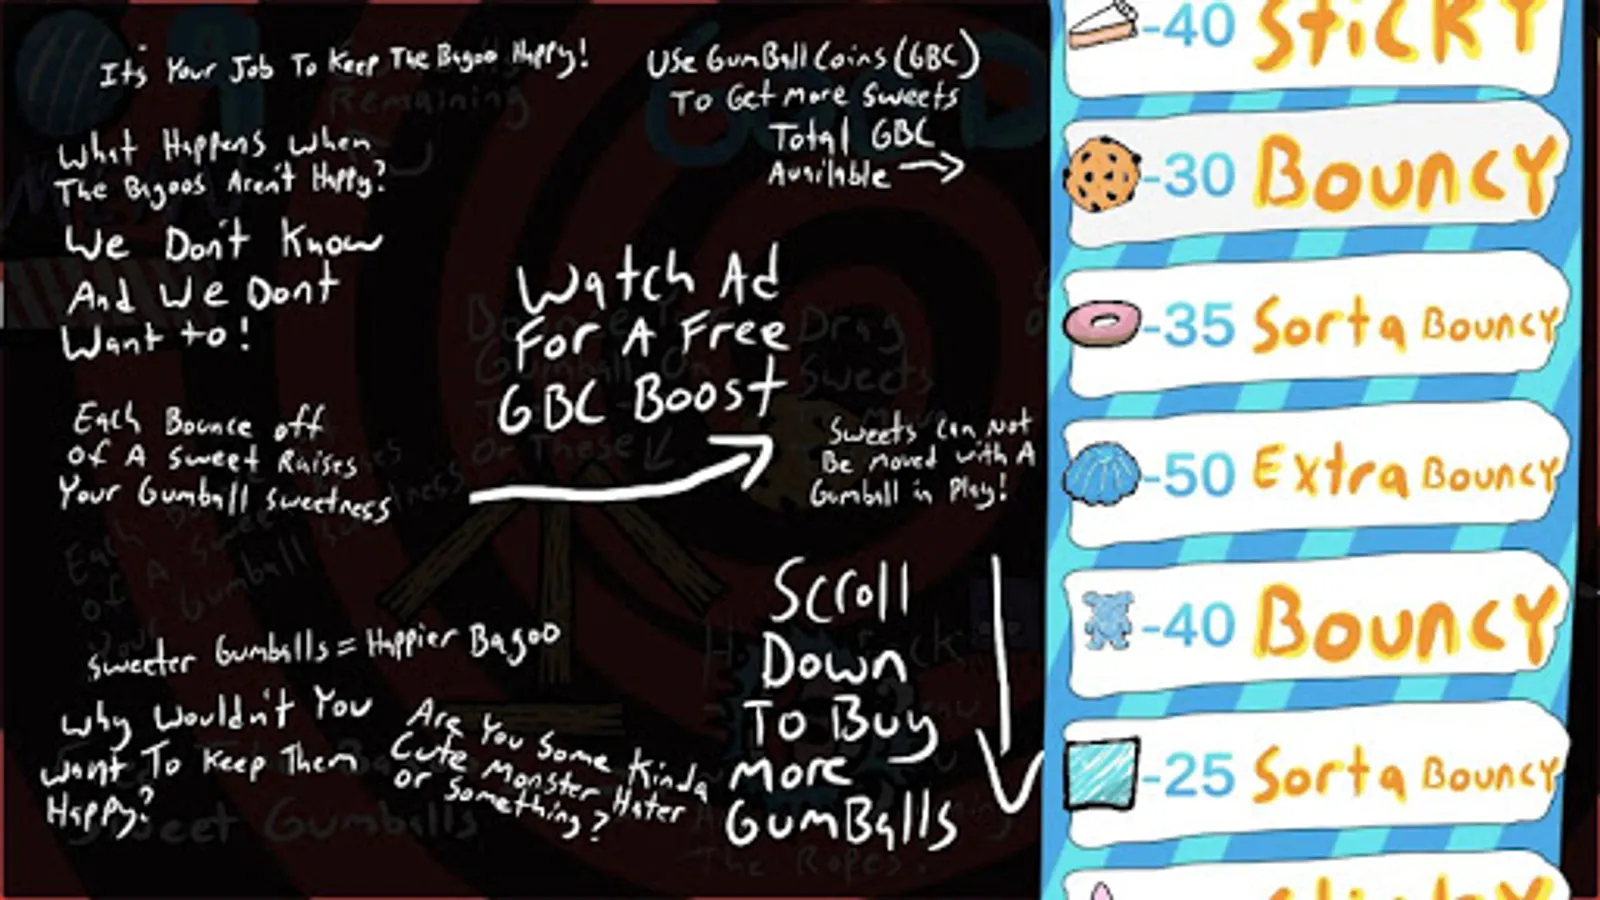 It's Your Job To Keep The Bagoo Happy!
What Happens when
The Bagoos Aren't Happy?
We Don't Know
And We Dont
Want to!
Each Bounce off
of A Sweet Raises
Your Gumball Sweetness
Sweeter Gumballs = Happier Bagoo
Why Wouldn't You
Want To Keep Them
Happy?
Are You Some Kinda
Cute Monster Hater
or Something?
Use GumBall Coins (GBC)
To Get More Sweets
Total GBC
Available
Watch Ad
For A Free
GBC Boost
Sweets Can Not
Be Moved with A
Gumball in Play!
Scroll
Down
To Buy
More
GumBalls
Remaining
Drag
Sweets
Or These
Sweet Gumballs
The Ropes.
-40 Sticky
-30 Bouncy
-35 Sorta Bouncy
-50 Extra Bouncy
-40 Bouncy
-25 Sorta Bouncy
Sticky